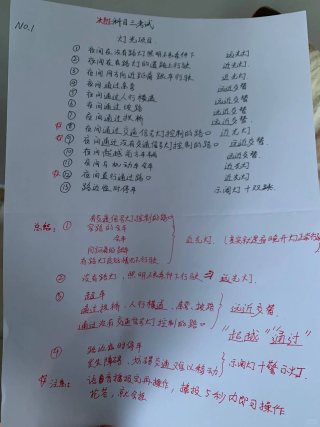 NO.1
科目三考试
灯光项目
① 夜间在没有路灯照明不良条件下 远光灯
② 夜间在有路灯的道路上行驶 近光灯
③ 夜间同方向近距离跟车行驶 近光灯
④ 夜间通过急弯 远近交替
⑤ 夜间通过人行横道 远近交替
⑥ 夜间通过坡路 远近交替
⑦ 夜间通过拱桥 远近交替
⑧ 夜间通过交通信号灯控制的路口 近光灯
⑨ 夜间通过没有交通信号灯控制的路口 远近交替
⑩ 夜间超越前方车辆 远近交替
⑪ 夜间与机动车会车 近光灯
⑫ 夜间直行通过路口 近光灯
⑬ 路边临时停车 示阔灯+双跳
总结: ① 有交通信号灯控制的路口
窄路 会车
会车
近光灯
有路灯
② 没有路灯,照明不良条件下行驶 → 远光灯
③ 超车
通过拱桥、人行横道、急弯、坡路
通过没有交通信号灯控制的路口
远近交替
"超越" "通过"
④ 路边临时停车
发生障碍、妨碍交通难以移动
示阔灯+警示灯
注意: 语音播报完再操作,播报5秒内即可操作